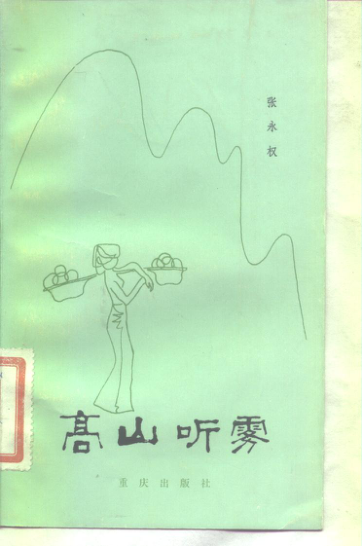 张永权
高山听雾
重庆出版社